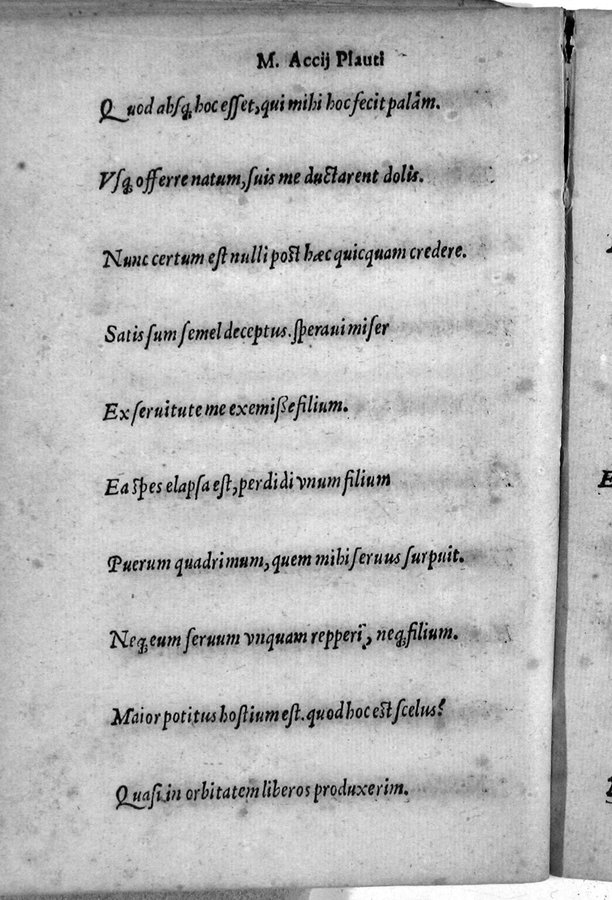 M. Accij Plauti
Quod absq; hoc esset, qui mihi hoc fecit palàm.
Vſq; offerre natum, ſuis me ductarent dolis.
Nunc certum eſt nulli poſt hæc quicquam credere.
Satis ſum ſemel deceptus. ſperaui miſer
Ex ſeruitute me exemiſſe filium.
Ea ſpes elapſa eſt, perdidi vnum filium
Puerum quadrimum, quem mihi ſeruus ſurpuit.
Neq; eum ſeruum vnquam repperi, neq; filium.
Maior potitus hoſtium eſt. quod hoc eſt ſcelus?
Quaſi in orbitatem liberos produxerim.